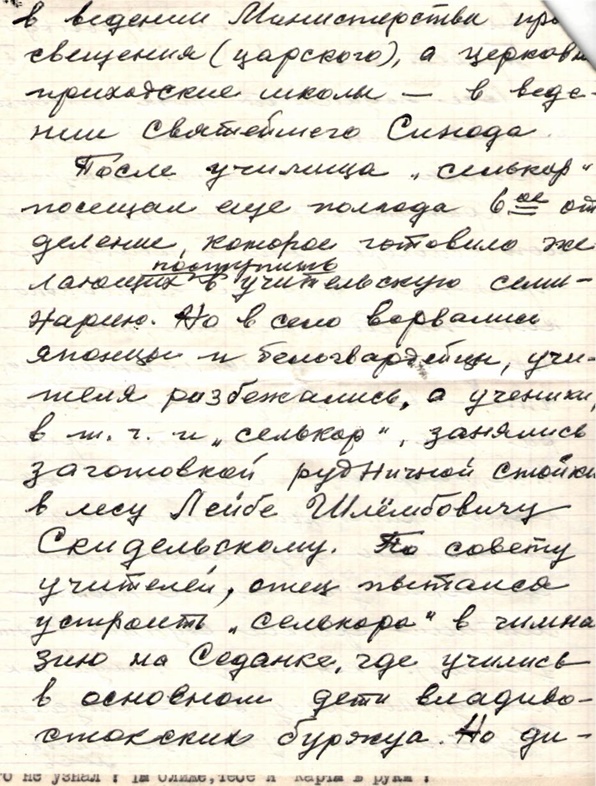 в ведении Министерства про
свещения (царского), а церковн
приходские школы — в веде-
нии Святейшего Синода.
После училища „селькор“
посещал еще полгода 6ое от
деление, которое готовило же
поступить
лающих в учительскую семи-
нарию. Но в село ворвались
японцы и белогвардейцы, учи-
теля разбежались, а ученики,
в т. ч. и „селькор“, занялись
заготовкой рудничной стойки
в лесу Лейбе Шлёмбовичу
Скидельскому. По совету
учителей, отец пытался
устроить „селькора“ в гимна
зию на Седанке, где учились
в основном дети владиво-
стокских буржуа. Но ди-
о не узнал! ближе, тебе и карты в руки!